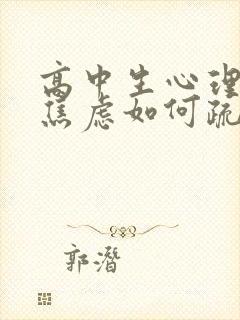 高中生心理
焦虑如何疏
郭潛